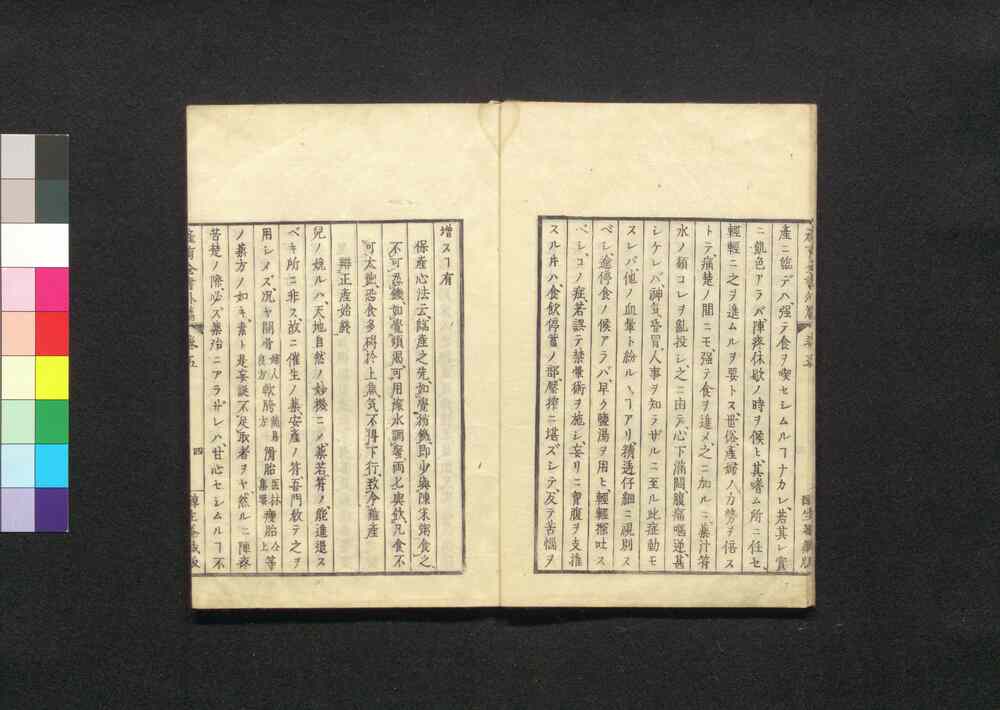 産ニ臨デハ强テ食ヲ喫セシムルヿナカレ、若其レ實
ニ飢色アラバ、陣疼休歇ノ時ヲ候ヒ、其嗜ム所ニ任セ、
輕輕ニ之ヲ進ムルヲ要トス、世俗產婦ノ力勢ヲ倍ス
トテ、痛楚ノ間ニモ、强テ食ヲ進メ、之ニ加ルニ、藥汁符
水ノ類コレヲ亂投シ、之ニ由テ、心下滿悶、腹痛嘔逆、甚
シケレバ、神氣昏冒、人事ヲ知ラザルニ至ル、此症動モ
スレバ、他ノ血暈ト紛ルヽヿアリ、精透仔細ニ視別ス
ベシ、這停食ノ候アラバ、早ク鹽湯ヲ用ヒ、輕輕探吐ス
ベシ、コノ症若誤テ禁暈術ヲ施シ、妄リニ實腹ヲ支推
スル片ハ、食飮停蓄ノ部、壓搾ニ堪ズシテ、反テ苦惱ヲ
增スヿ有
保產心法云、臨產之先、如覺招飢、卽少與陳米粥食之、
不可忍餓、如覺煩渇、可用滾水調蜜兩匕與飮、凡食不
可太飽、恐食多碍於上焦、氣不得下行、致令難產
辯正產始終
兒ノ娩ルハ、天地自然ノ妙機ニ〆、藥若符ノ能進退ス
ベキ所ニ非ス、故ニ催生ノ藥、安產ノ符、吾門敎テ之ヲ
用シメズ、况ヤ開骨 婦人良方 軟胯 簡易方 滑胎 醫林集要 瘦胎 仝上 等
ノ藥方ノ如キ、素ト是妄誕不足取者ヲヤ、然ルニ陣疼
苦楚ノ際、必ズ藥治ニアラザレハ、甘心セシムルヿ不
產育全書外篇 卷五 四